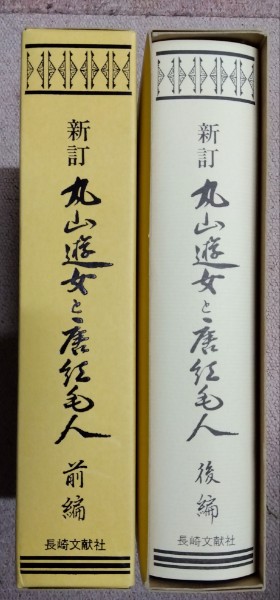 新訂
丸山遊女と唐紅毛人
前編
長崎文献社
新訂
丸山遊女と唐紅毛人
後編
長崎文献社